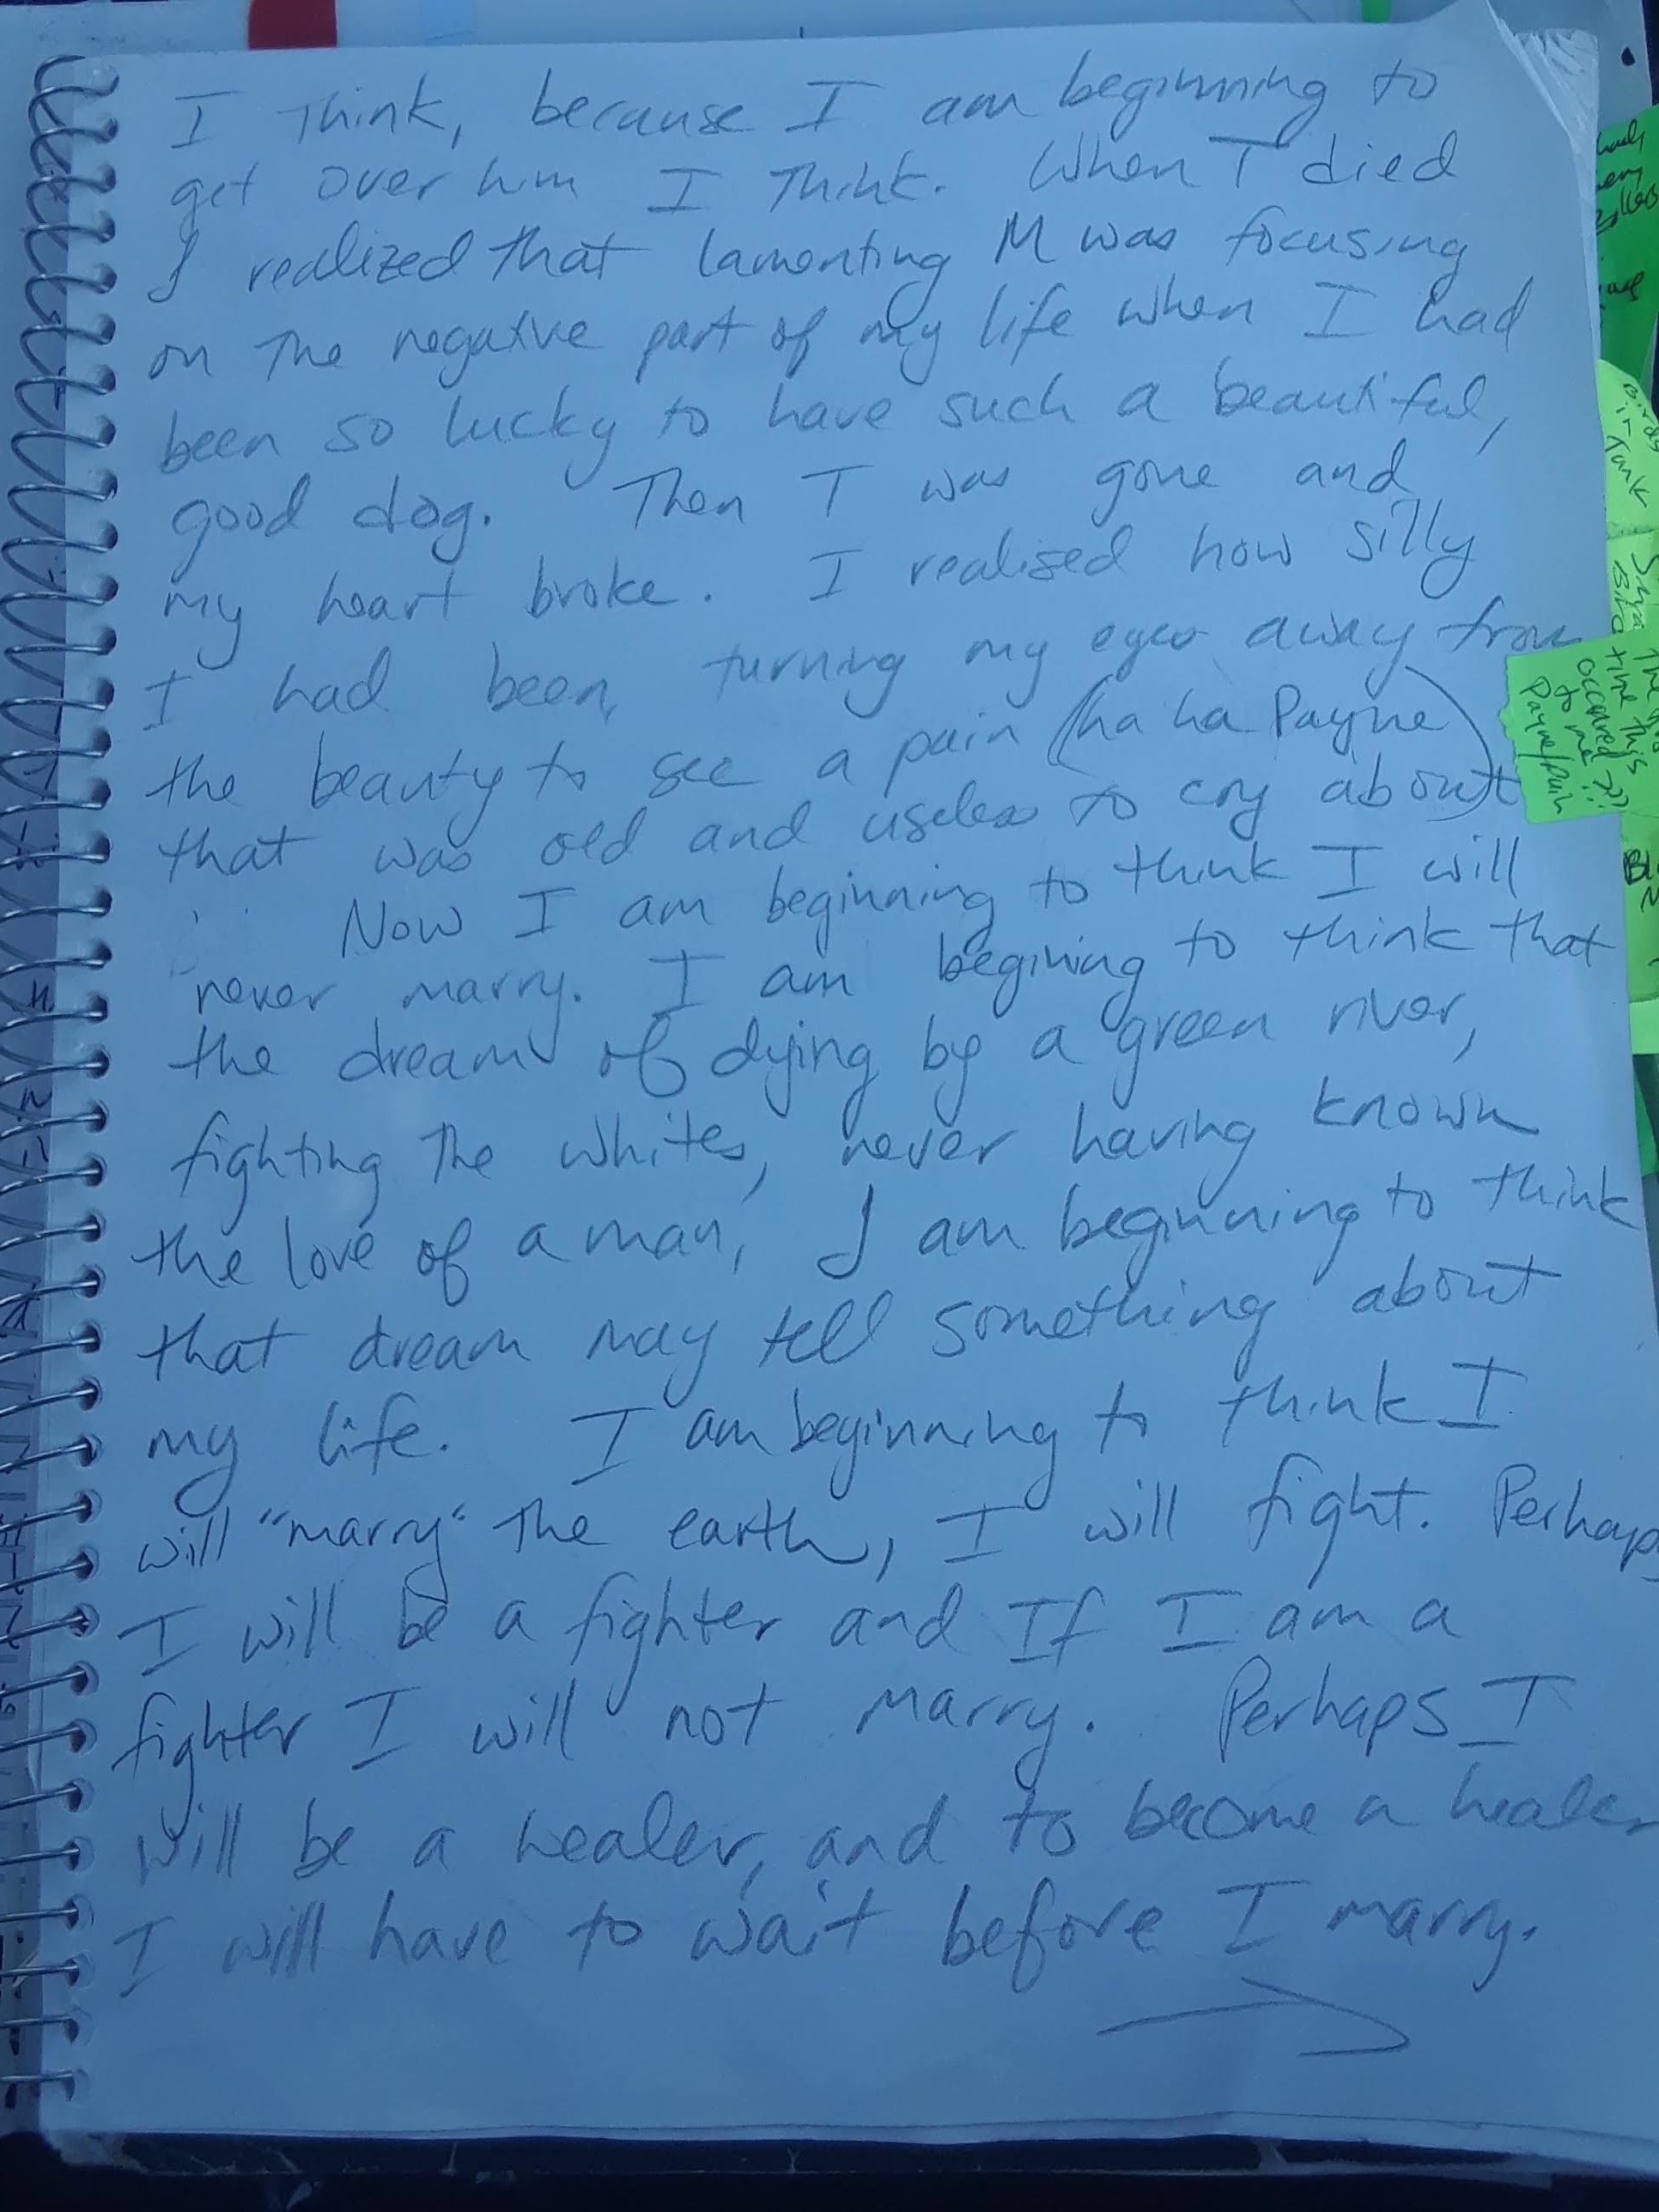 I think, because I am beginning to
get over him I think. When T died
I realized that lamenting M was focusing
on the negative part of my life when I had
been so lucky to have such a beautiful,
good dog. Then T was gone and
my heart broke. I realized how silly
I had been, turning my eyes away from
the beauty to see a pain (ha ha Payne)
that was old and useless to cry about
Now I am beginning to think I will
never marry. I am begining to think that
the dream of dying by a green river,
fighting the whites, never having known
the love of a man, I am beginning to think
that dream may tell something about
my life. I am beginning to think I
will "marry" the earth, I will fight. Perhaps
I will be a fighter and If I am a
fighter I will not marry. Perhaps I
will be a healer, and to become a healer
I will have to wait before I marry.
time this
occured
to me??
Payne/pain
Birds
in
Tank